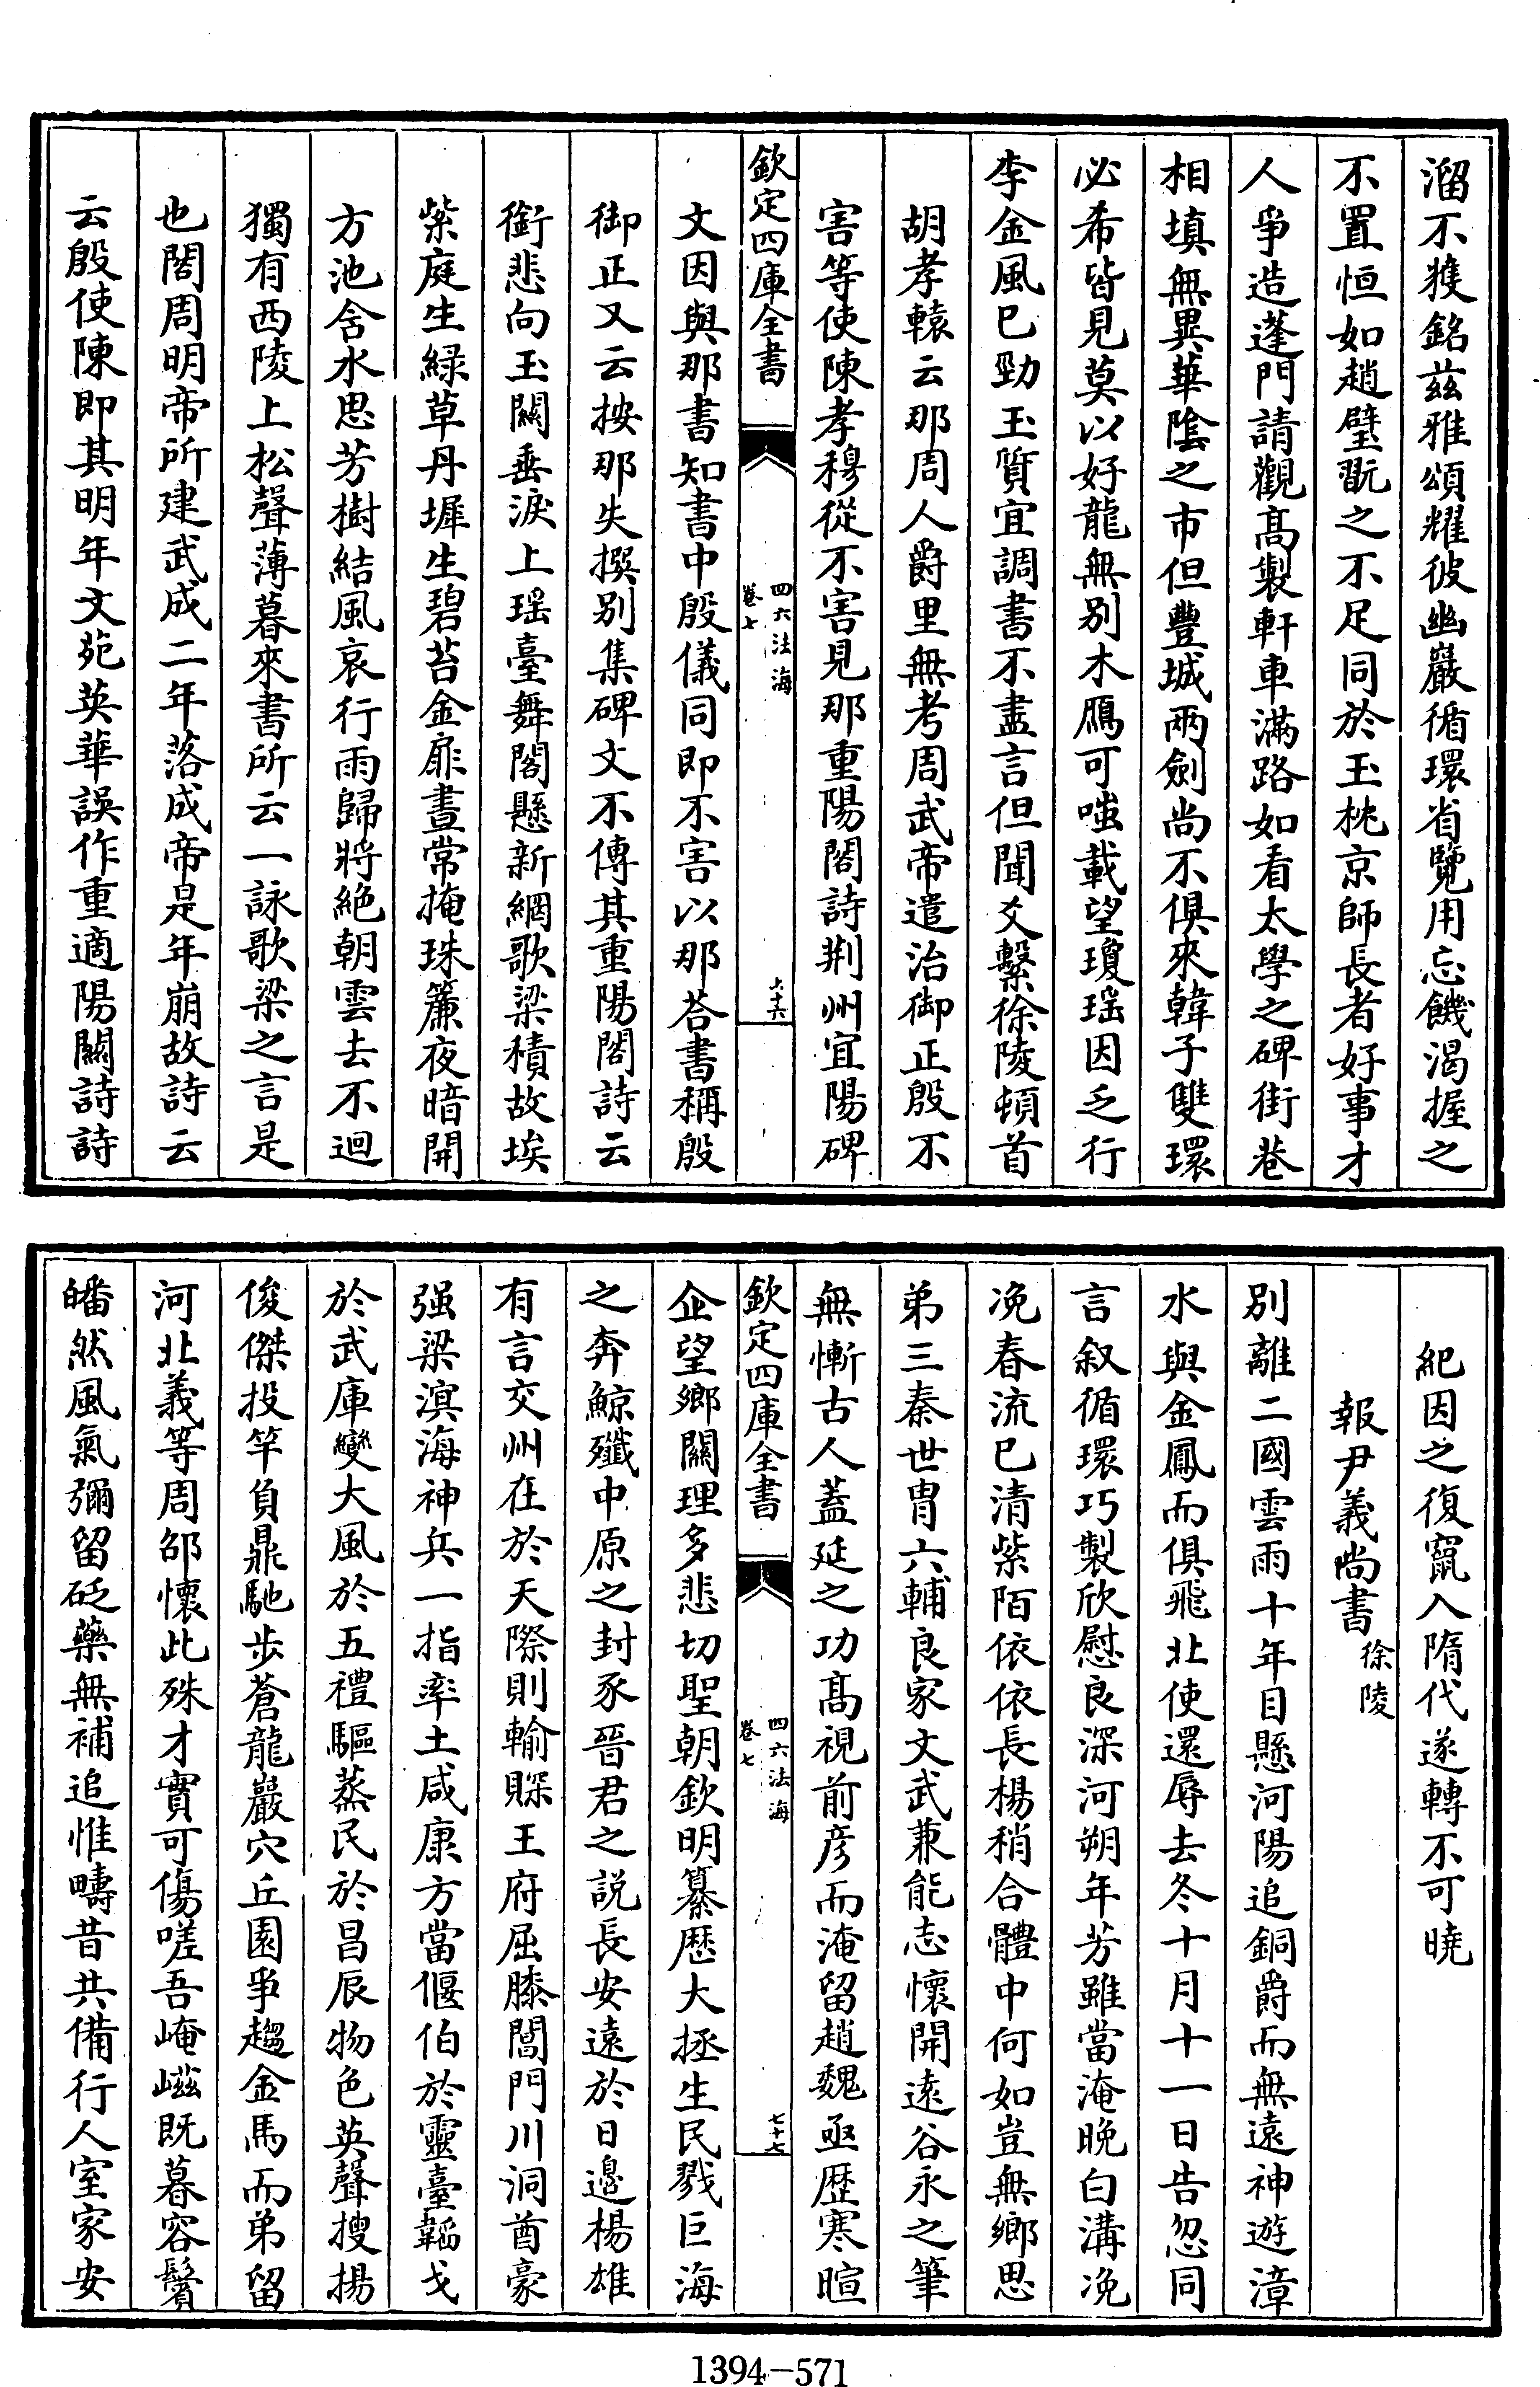 溜不獲銘茲雅頌耀彼幽巖循環省覽用忘饑渴握之
不置恒如趙璧翫之不足同於玉枕京師長者好事才
人爭造蓬門請觀高製軒車滿路如看太學之碑街巷
相填無異華陰之市但豐城兩劍尚不俱來韓子雙環
必希皆見莫以好龍無別木鴈可嗤載望瓊瑤因乏行
李金風已勁玉質宜調書不盡言但聞爻繫徐陵頓首
胡孝轅云那周人爵里無考周武帝遣治御正殷不
害等使陳孝穆從不害見那重陽閣詩荆州宜陽碑
欽定四庫全書
四六法海
卷七
六十六
文因與那書知書中殷儀同即不害以那荅書稱殷
御正又云按那失撰别集碑文不傳其重陽閣詩云
銜悲向玉關垂淚上瑶臺舞閣懸新網歌梁積故埃
紫庭生緑草丹墀生碧苔金扉晝常掩珠簾夜暗開
方池含水思芳樹結風哀行雨歸將絶朝雲去不迴
獨有西陵上松聲薄暮來書所云一詠歌梁之言是
也閣周明帝所建武成二年落成帝是年崩故詩云
云殷使陳即其明年文苑英華誤作重適陽關詩詩
紀因之復竄入隋代遂轉不可曉
報尹義尚書 徐陵
別離二國雲雨十年目懸河陽追銅爵而無遠神遊漳
水與金鳳而俱飛北使還辱去冬十月十一日告忽同
言叙循環巧製欣慰良深河朔年芳雖當淹晚白溝浼
浼春流已清紫陌依依長楊稍合體中何如豈無鄉思
弟三秦世胄六輔良家文武兼能志懷開遠谷永之筆
無慚古人蓋延之功高視前彦而淹留趙魏亟歴寒暄
欽定四庫全書
四六法海
卷七
七十七
企望鄉關理多悲切聖朝欽明纂歴大拯生民戮巨海
之奔鯨殲中原之封豕晉君之説長安遠於日邊楊雄
有言交州在於天際則輸賝王府屈膝閶門川洞酋豪
强梁溟海神兵一指率土咸康方當偃伯於靈臺韜戈
於武庫變大風於五禮驅蒸民於昌辰物色英聲搜揚
俊傑投竿負鼎馳步蒼龍巖穴丘園爭趨金馬而弟留
河北義等周邵懷此殊才實可傷嗟吾崦嵫既暮容鬢
皤然風氣彌留砭藥無補追惟疇昔共備行人室家安
1394-571